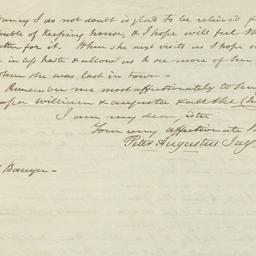 Nancy I do not doubt is glad to be relieved f
ouble of keeping house, & I hope will feel th
tter for it. When she next visits us I hope s
in less haste & allow us to see more of her
when she was last in town—
Remember me most affectionately to
William & Augusta & all the
I am my dear sister
Your very affectionate
Peter Augustus Jay
Banyer—